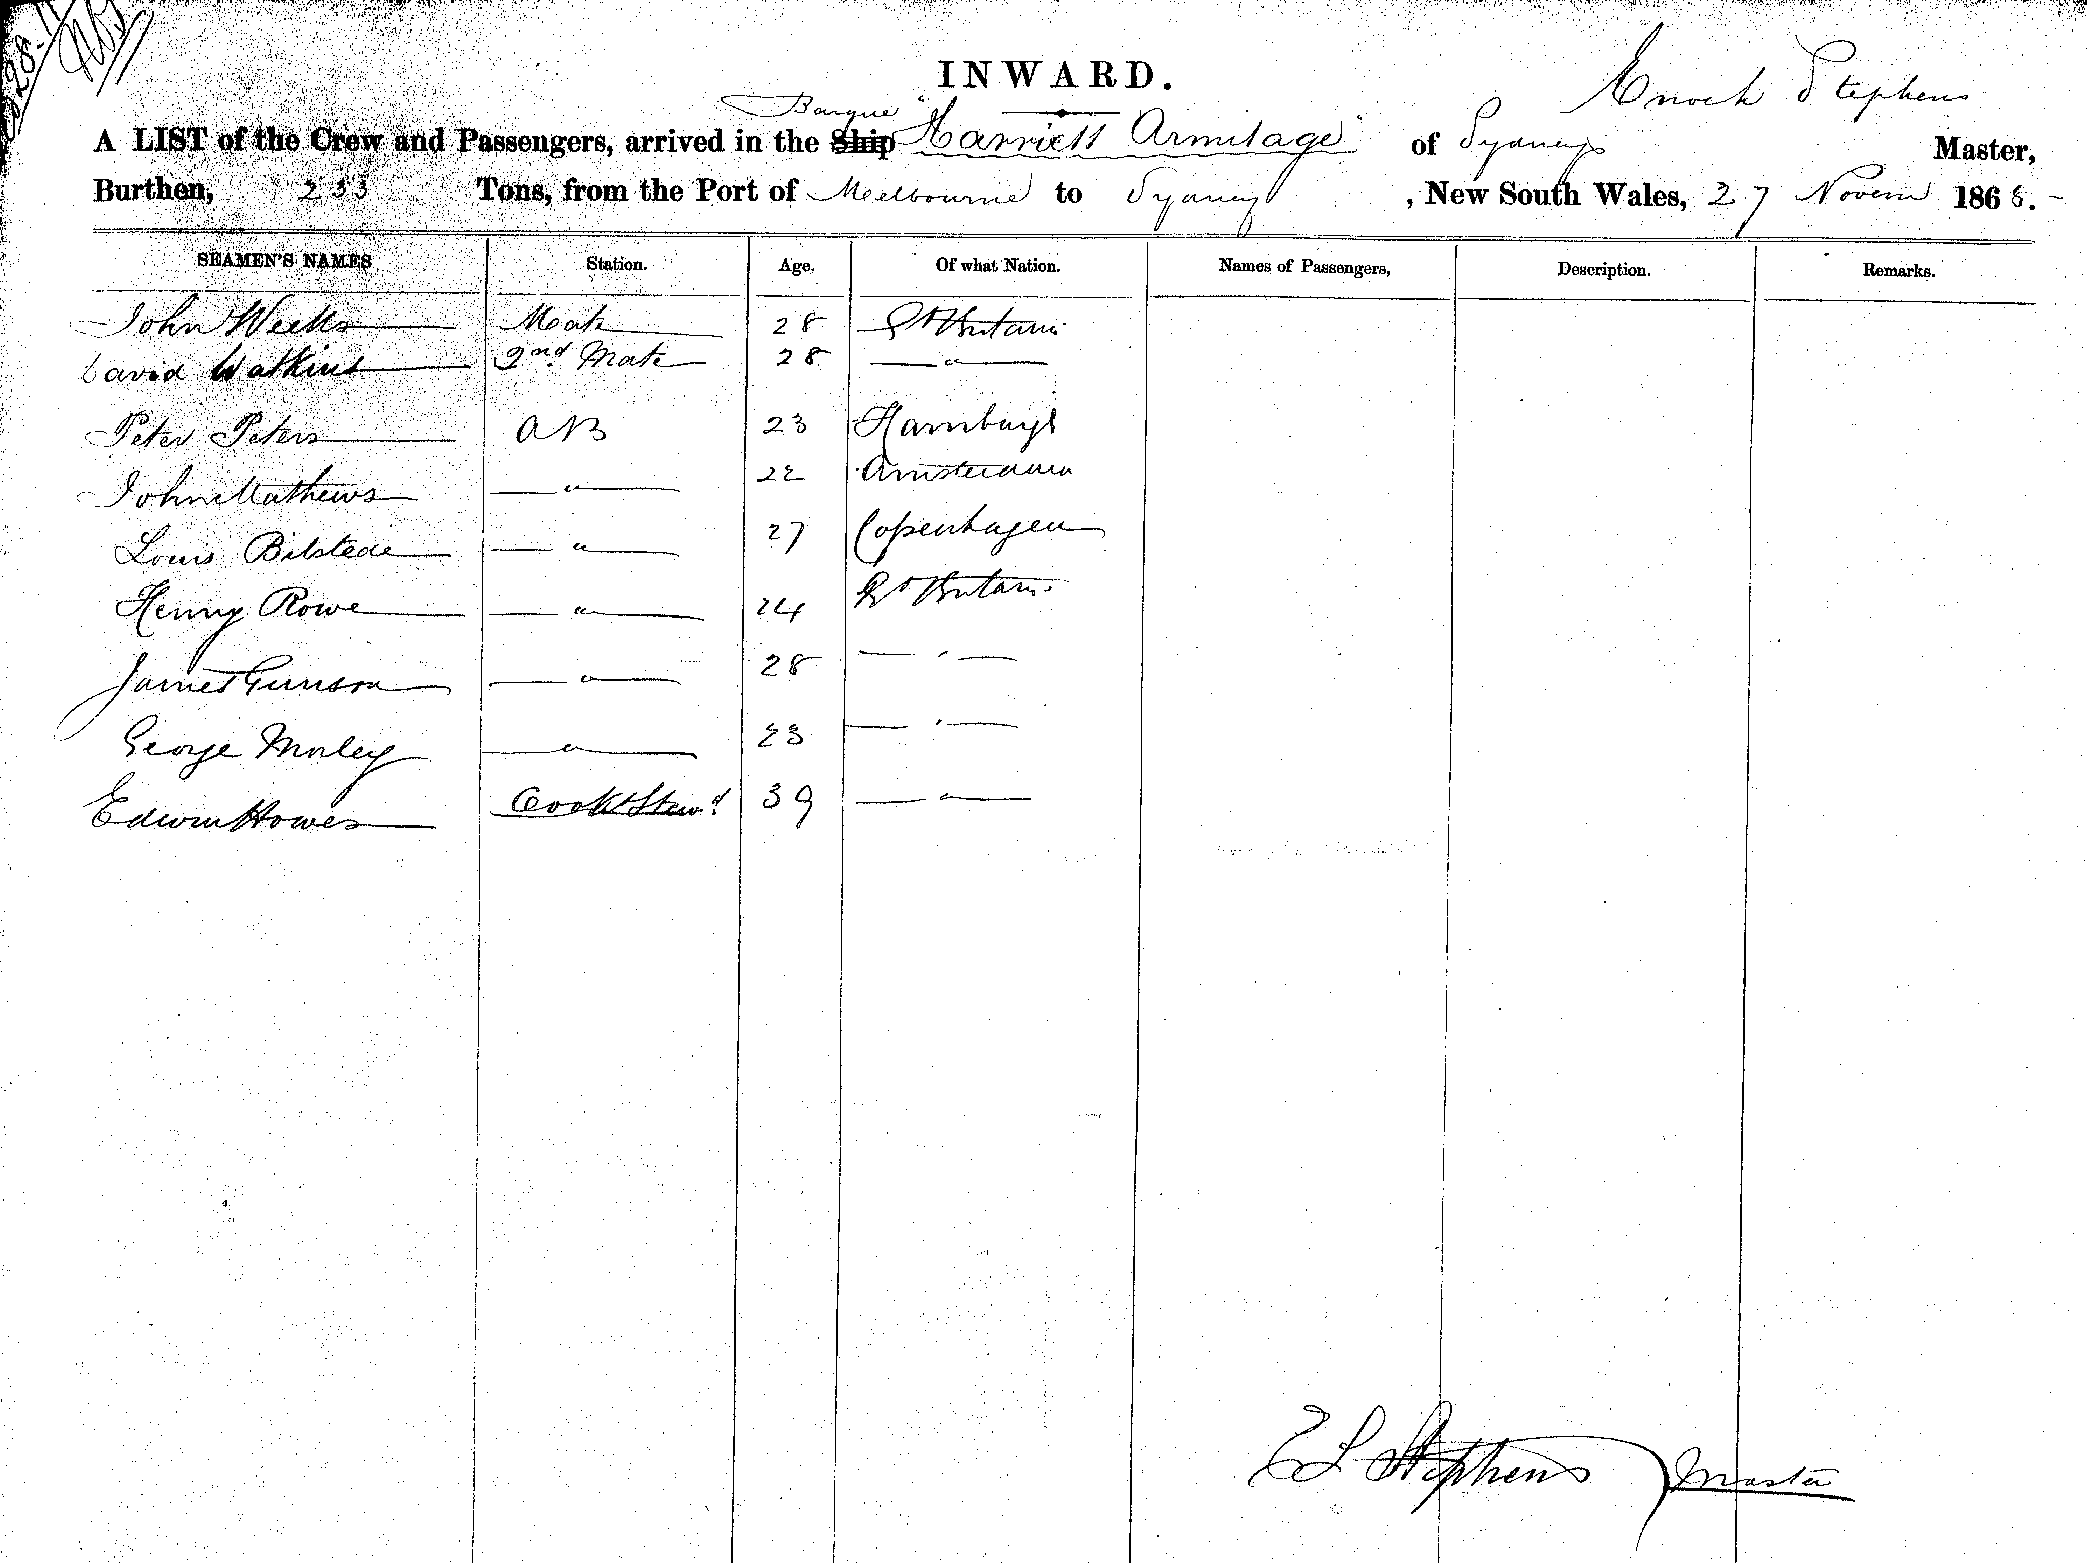 INWARD.
Enoch Stephens
Barque
A LIST of the Crew and Passengers, arrived in the Ship "Harriett Armitage" of Sydney Master,
Burthen, 233 Tons, from the Port of Melbourne to Sydney, New South Wales, 27 Novem 1868.
SEAMEN'S NAMES Station. Age. Of what Nation. Names of Passengers, Description. Remarks.
John Weeks Mate 28 Gt Britain
David Watkins 2nd Mate 28 — " —
Peter Peters AB 23 Hamburgh
John Mathews — " — 22 Amsterdam
Louis Bilstede — " — 27 Copenhagen
Henry Rowe — " — 24 Gt Britain
James Gunson — " — 28 — " —
George Morley — " — 23 — " —
Edwin Howes Cook & Stewd 39 — " —
E S Stephens Master